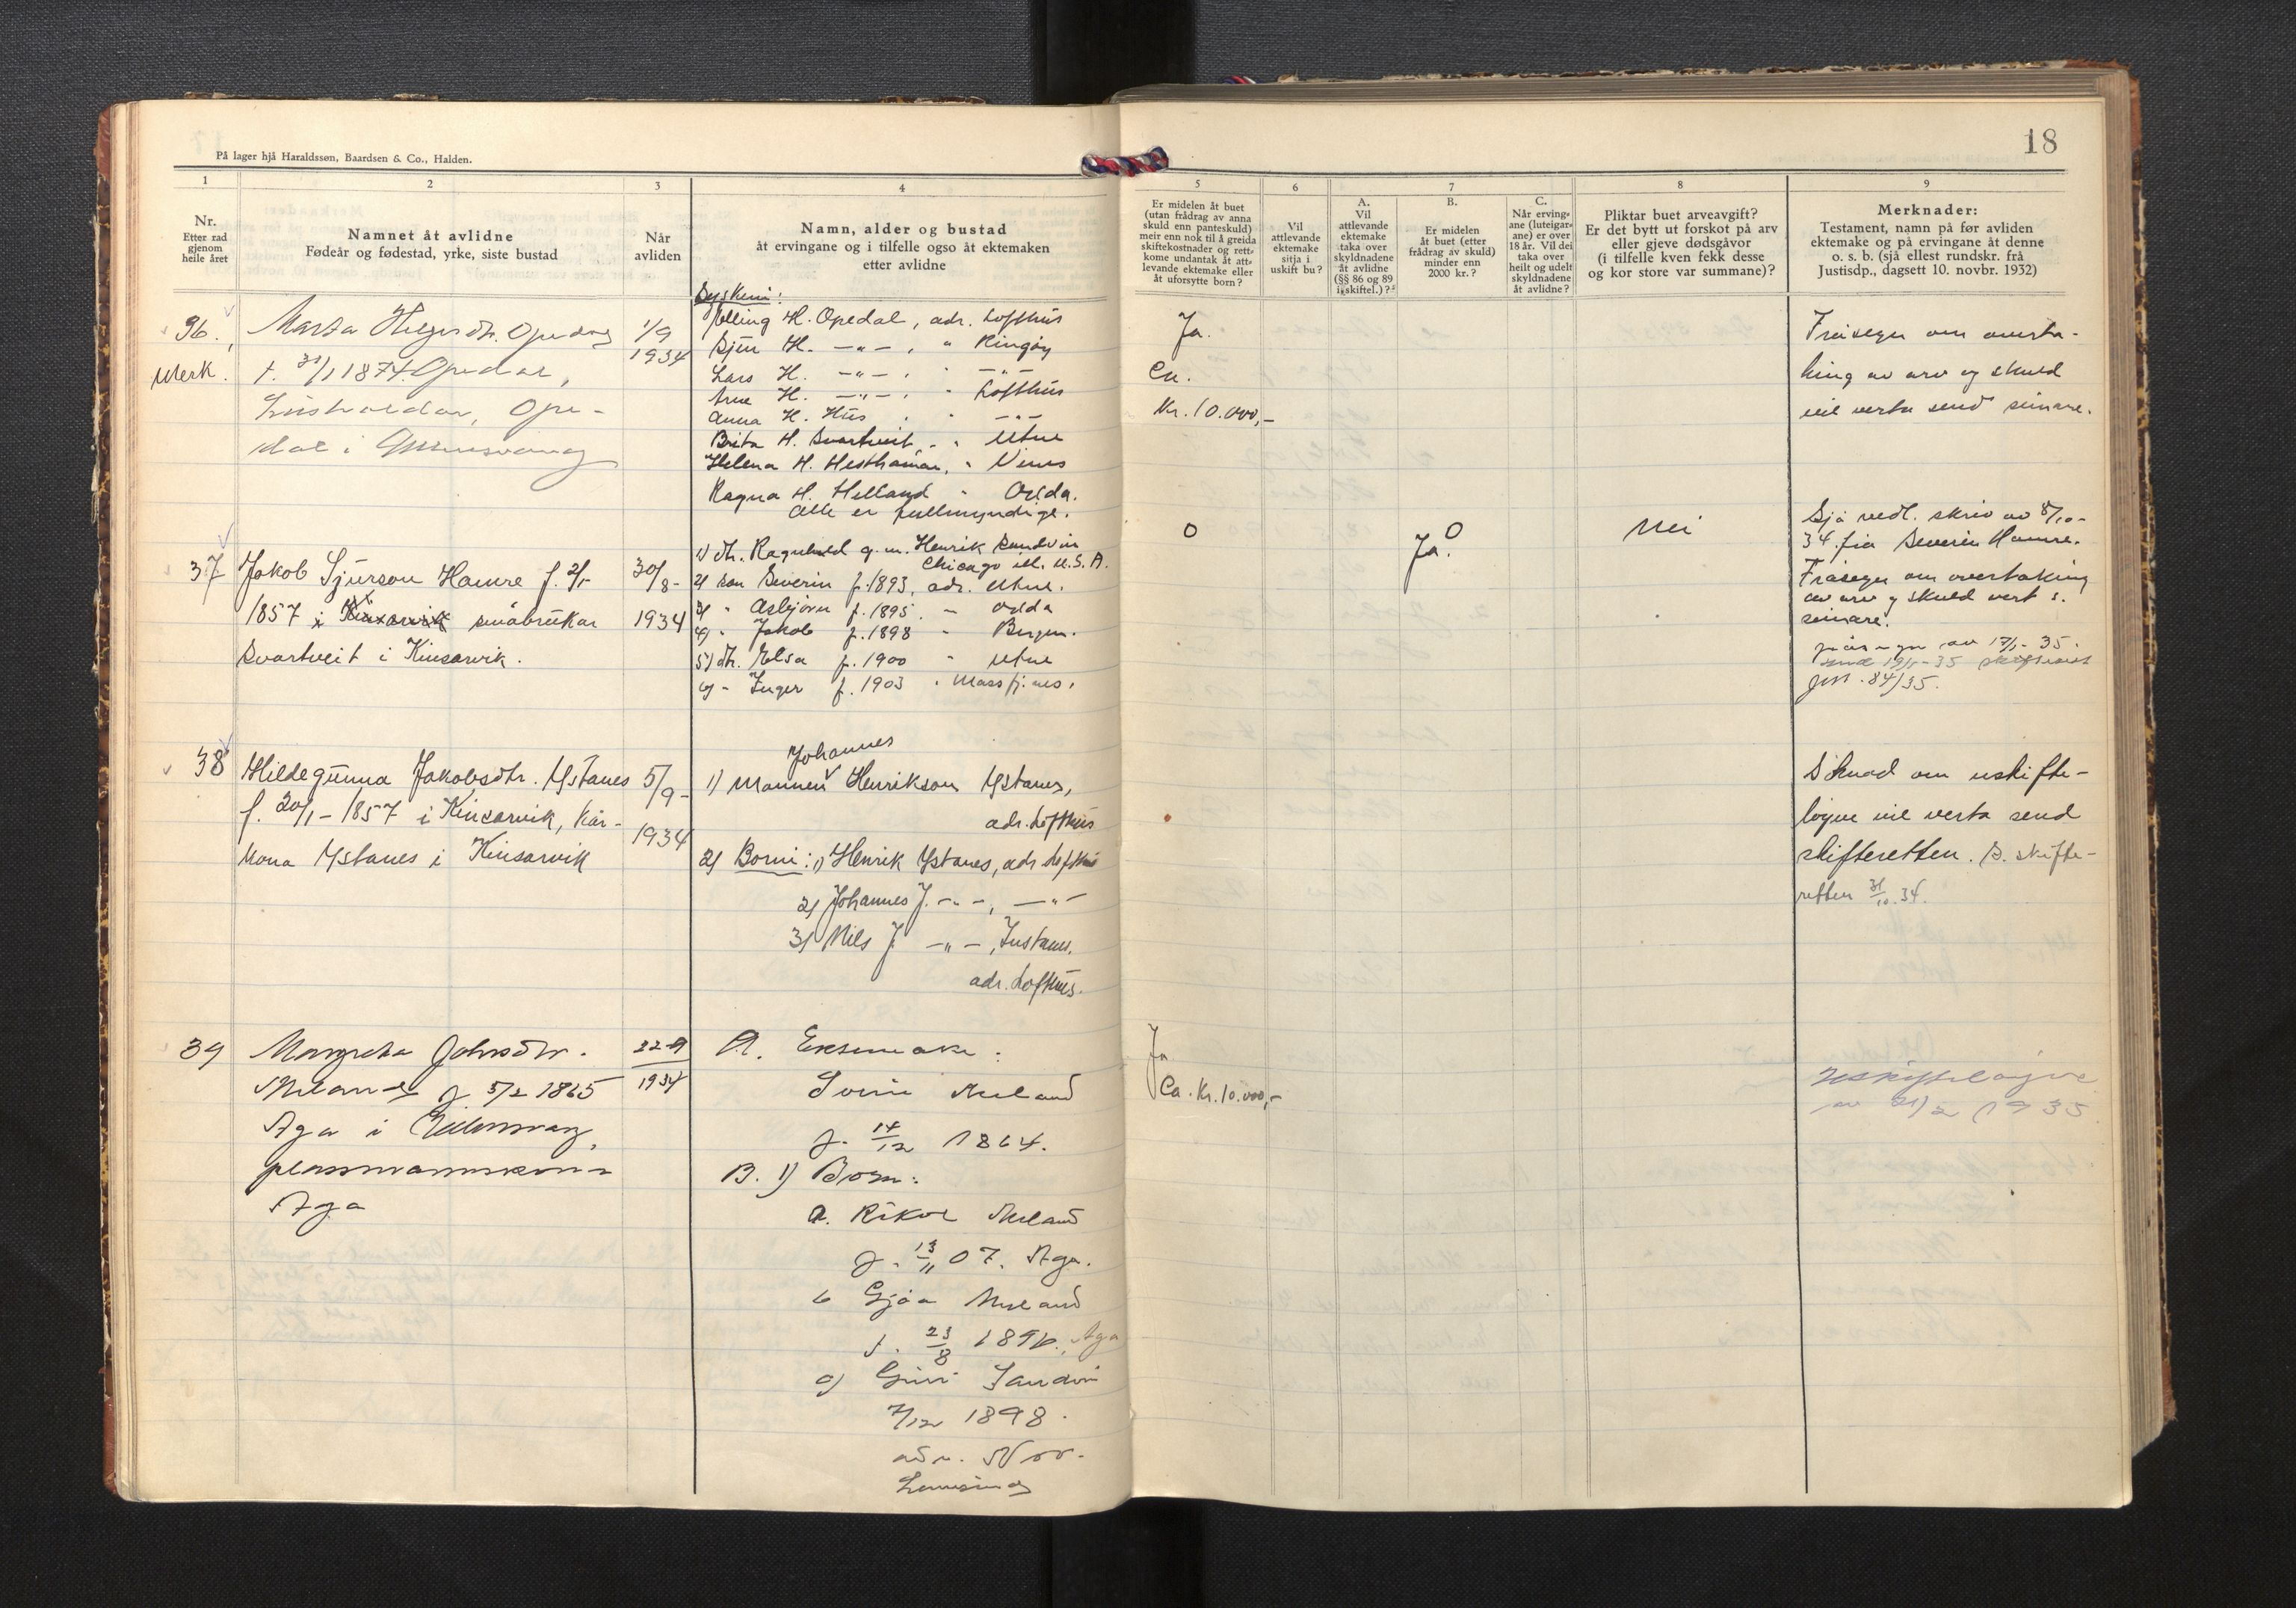 På lager hjå Haraldssøn, Baardsen & Co., Halden.
18
1
2
3
4
5
6
7
8
9
Nr.
Etter rad
gjenom
heile året
Namnet åt avlidne
Fødeår og fødestad, yrke, siste bustad
Når
avliden
Namn, alder og bustad
åt ervingane og i tilfelle også åt ektemaken
etter avlidne
Er midelen åt buet
(utan frådrag av anna
skuld enn panteskuld)
meir enn nok til å greida
skiftekostnader og rett-
kome undantak åt att-
levande ektemake eller
åt uforsytte born?
Vil
attlevande
ektemake
sitja i
uskift bu?
A.
Vil
attlevande
ektemake
taka over
skyldnadene
åt avlidne
(§§ 86 og 89
i skiftel.)?
B.
Er midelen
åt buet (etter
frådrag av skuld)
minder enn
2000 kr.?
C.
Når erving-
ane (luteigar-
ane) er over
18 år. Vil dei
taka over
heilt og udelt
skyldnadene
åt avlidne?
Pliktar buet arveavgift?
Er det bytt ut forskot på arv
eller gjeve dødsgåvor
(i tilfelle kven fekk desse
og kor store var summane)?
Merknader:
Testament, namn på før avliden
ektemake og på ervingane åt denne
o. s. b. (sjå ellest rundskr. frå
Justisdp., dagsett 10. novbr. 1932)
36.
Merk.
Marta Helgesdtr. Opedal
f. 31/1 1874 Opedal,
hushaldar, Ope-
dal i Ullensvang
1/9
1934
Syskeni:
Elling H. Opedal, adr. Lofthus
Sjur H. -"- , " Ringøy
Lars H. -"- , " -"-
Arne H. -"- , " Lofthus
Anna H. Hus " -"-
Brita H. Svartveit - " Utne
Helena H. Hesthamar, " Vines
Ragna H. Helland " Odda.
alle er fullmyndige.
Ja.
Ca.
Kr. 10.000,-
Fråsegn om overta-
king av arv og skuld
vil verta send seinare.
37
Jakob Sjurson Hamre f. 2/5
1857 i Kinsarvik småbrukar
Svartveit i Kinsarvik.
30/8-
1934
1) dtr. Ragnhild g.m. Henrik Sandvin
Chicago ill. U.S.A.
2) son Severin f. 1893, adr. Utne.
3) " Asbjørn f. 1895 - Odda
4) " Jakob f. 1898 - Bergen.
5) dtr. Elsa f. 1900 " Utne
6) - Inger f. 1903
0
Ja.
0
Nei
Sjå vedl. skriv av 8/10-
34 frå Severin Hamre.
Fråsegn om overtaking
av arv og skuld vert s.
seinare.
84/35.
38
Hildegunna Jakobsdtr. Ystanes
f. 20/1 - 1857 i Kinsarvik, kår-
kona Ystanes i Kinsarvik
5/9-
1934
Johannes
1) Mannen Henrikson Ystanes,
adr. Lofthus
2) Borni: 1) Henrik Ystanes, adr. Lofthus
2) Johannes J. -"-, -"-
3) Nils J. -"-, Ystanes.
adr. Lofthus.
Søknad om uskifte-
løyve vil verta send
skifteretten. S. skifte-
retten 31/10 34.
39
Margreta Johnsdtr.
Meland f. 5/2 1865
Aga i Ullensvang,
plassmannskona
Aga
22-9
1934
A. Ektemake:
Meland
f. 14/12 1864.
B. 1) Born:
a. Rikol Meland
f. 13/11 07. Aga.
b Gjøa Meland
f. 23/8 1896. Aga
c) Guri Sandvin
7/12 1898.
adr. Nor-
heimsund
Ja
Ca. Kr. 10.000,-
Uskifteløyve
av 21/2 1935